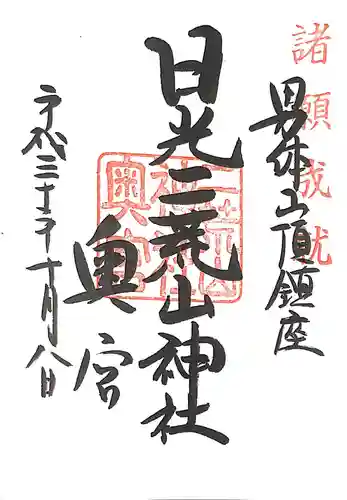 諸願成就
男体山頂鎮座
日光二荒山神社
奥宮
平成三十年十月八日
二荒山
神社
奥宮